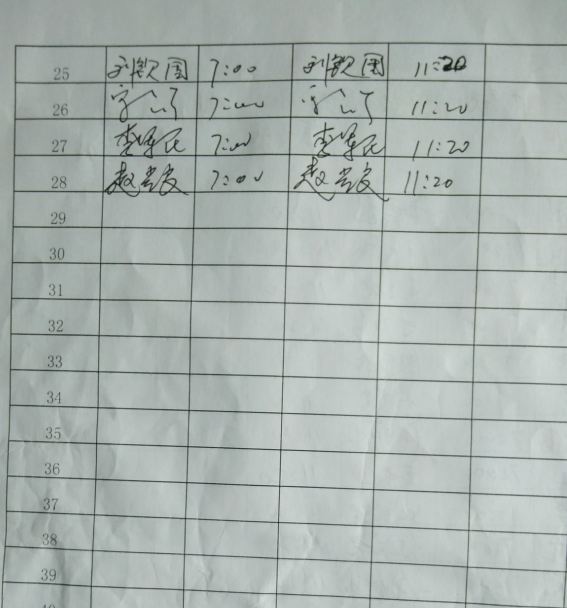 25 刘毅国 7:00 刘毅国 11:20
26 7:00 11:20
27 李军民 7:00 李军民 11:20
28 赵 7:00 赵 11:20
29
30
31
32
33
34
35
36
37
38
39
40